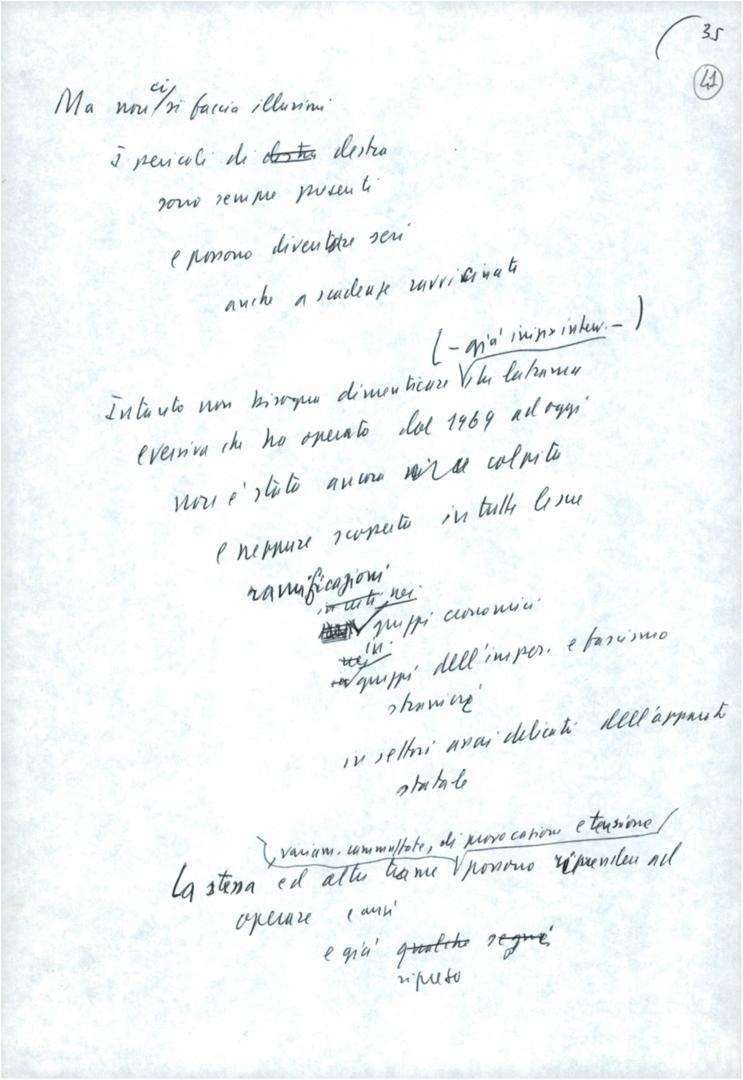 35
41
Ma non ci/si faccia illusioni
I pericoli di destra destra
sono sempre presenti
e possono diventare seri
anche a scadenze ravvicinate
(- già inizio interv. -)
Intanto non bisogna dimenticare che la trama
eversiva che ha operato dal 1969 ad oggi
non è stata ancora colpita
e neppure scoperta in tutte le sue
ramificazioni
in certi nei
gruppi economici
nei in
gruppi dell'imper. e fascismo
straniero
in settori assai delicati dell'apparato
statale
variam. camuffate, di provocazione e tensione
La stessa ed altre trame possono riprendere ad
operare
e già qualche segno
ripreso